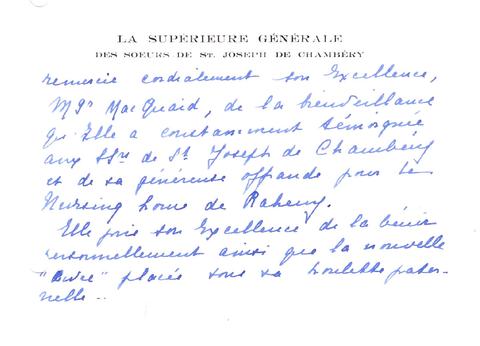 LA SUPÉRIEURE GÉNÉRALE
DES SOEURS DE ST. JOSEPH DE CHAMBÉRY
remercie cordialement son Excellence,
Mgr MacQuaid, de la bienveillance
qu'Elle a constamment témoignée
aux SSrs de St Joseph de Chambéry
et de sa généreuse offrande pour le
Nursing home de Raheny.
Elle prie son Excellence de la bénir
personnellement ainsi que la nouvelle
placée sous sa houlette pater-
nelle..